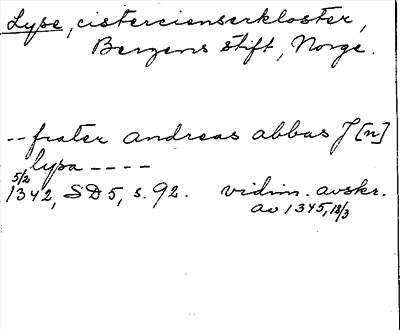 Lyse, cistercienserkloster,
Bergens stift, Norge.
-- frater Andreas abbas J [n]
lysa ----
5/2
1342, SD 5, s. 92. vidim. avskr.
av 1345, 18/3